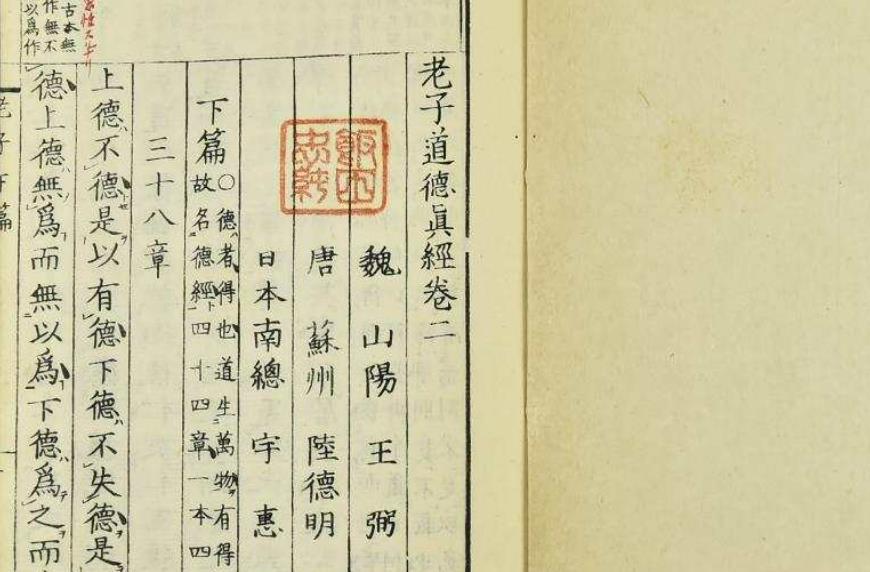 老子道德眞經卷二
魏 山陽 王 弼
唐 蘇州 陸德明
日本南總 宇 惠
下篇○德者得也道生萬物有得
故名德經四十四章一本四
三十八章
上德不德是以有德下德不失德是
德上德無爲而無以爲下德爲之而
古本無
作無不
以爲作
老子下篇